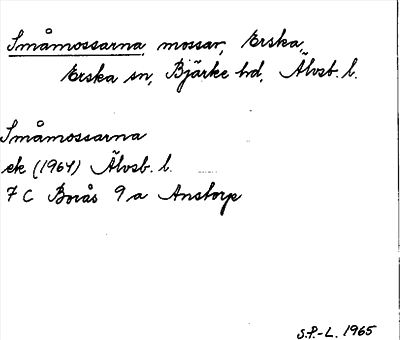 Småmossarna, mossar, Erska,
Erska sn, Bjärke hd, Älvsb. l.
Småmossarna
ek (1964) Älvsb. l.
7 C Borås 9 a Anstorp
S.P.-L. 1965